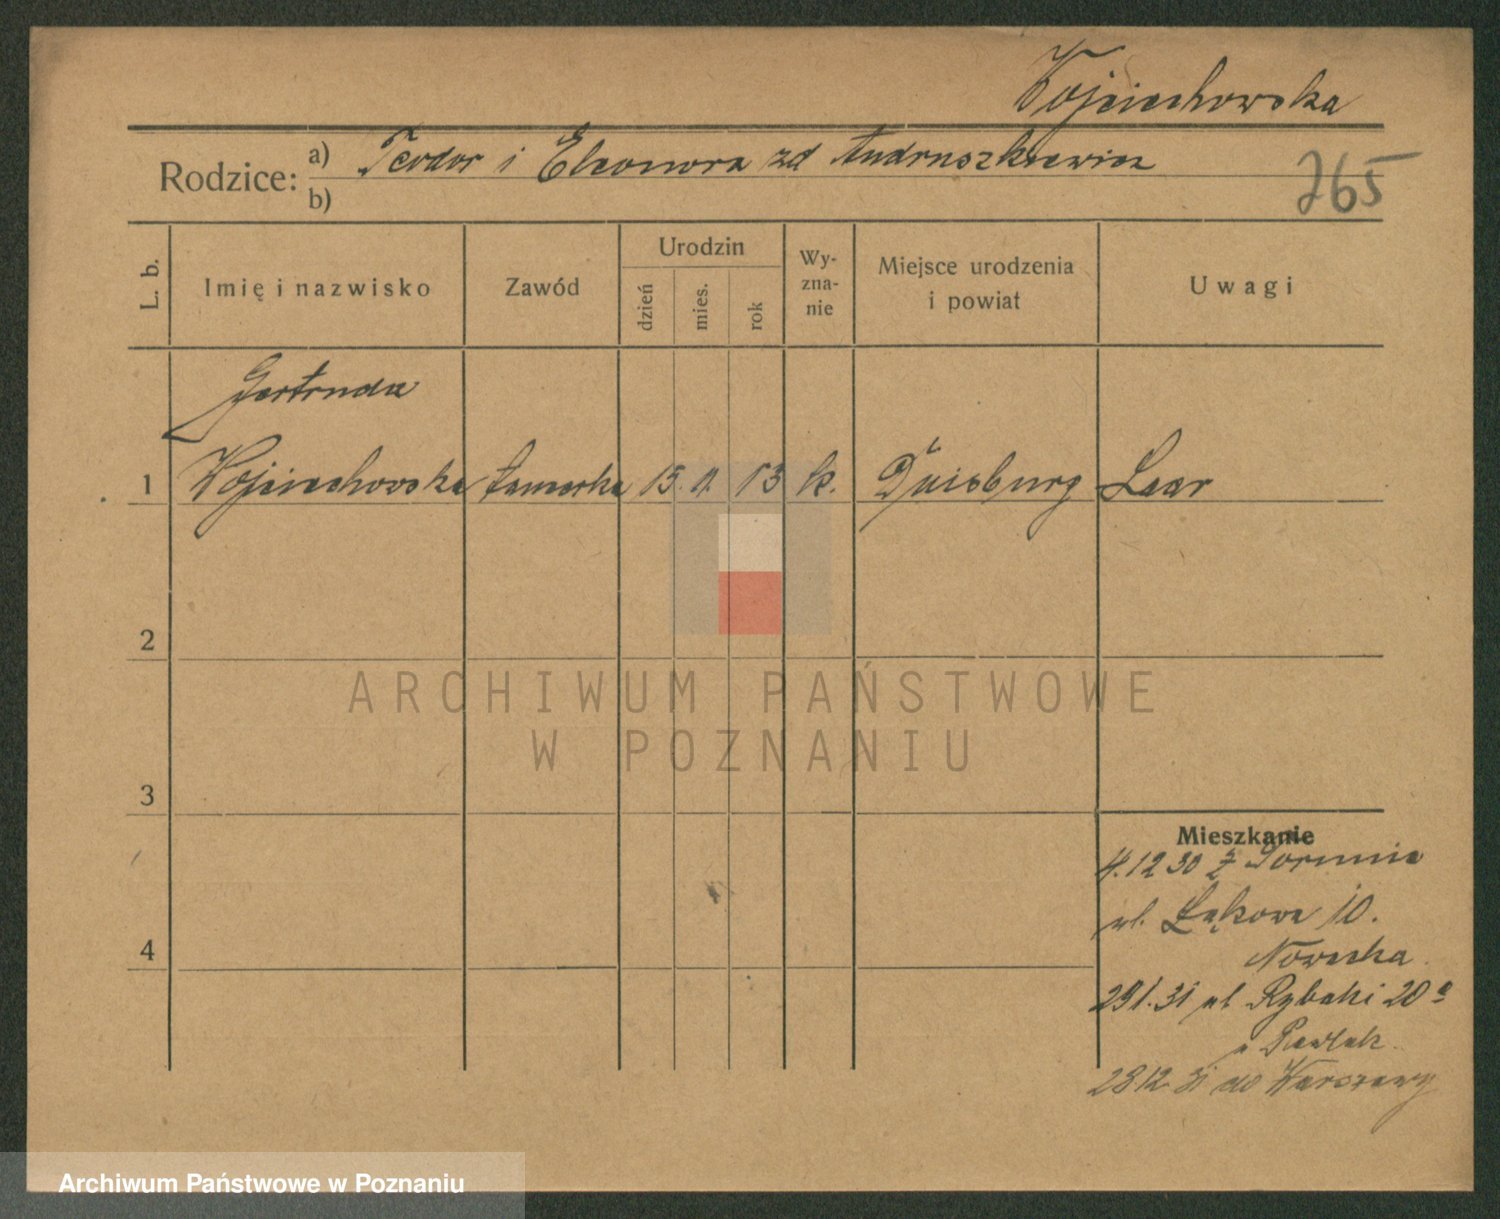 Wojciechowska
Rodzice: a) Teodor i Eleonora zd Andruszkiewicz
b)
765
L. b.
Imię i nazwisko
Zawód
Urodzin
dzień
mies.
rok
Wy-
zna-
nie
Miejsce urodzenia
i powiat
Uwagi
Gertruda
1 Wojciechowska 15. 13 k. Duisburg Laar
2
3
4
Mieszkanie
4.12 30 z Torunia
ul. Łąkowa 10.
Nowacka
29 1.31 ul Rybaki 20 a
Pawlak
28 12 31 do Warszawy
ARCHIWUM PAŃSTWOWE
W POZNANIU
Archiwum Państwowe w Poznaniu